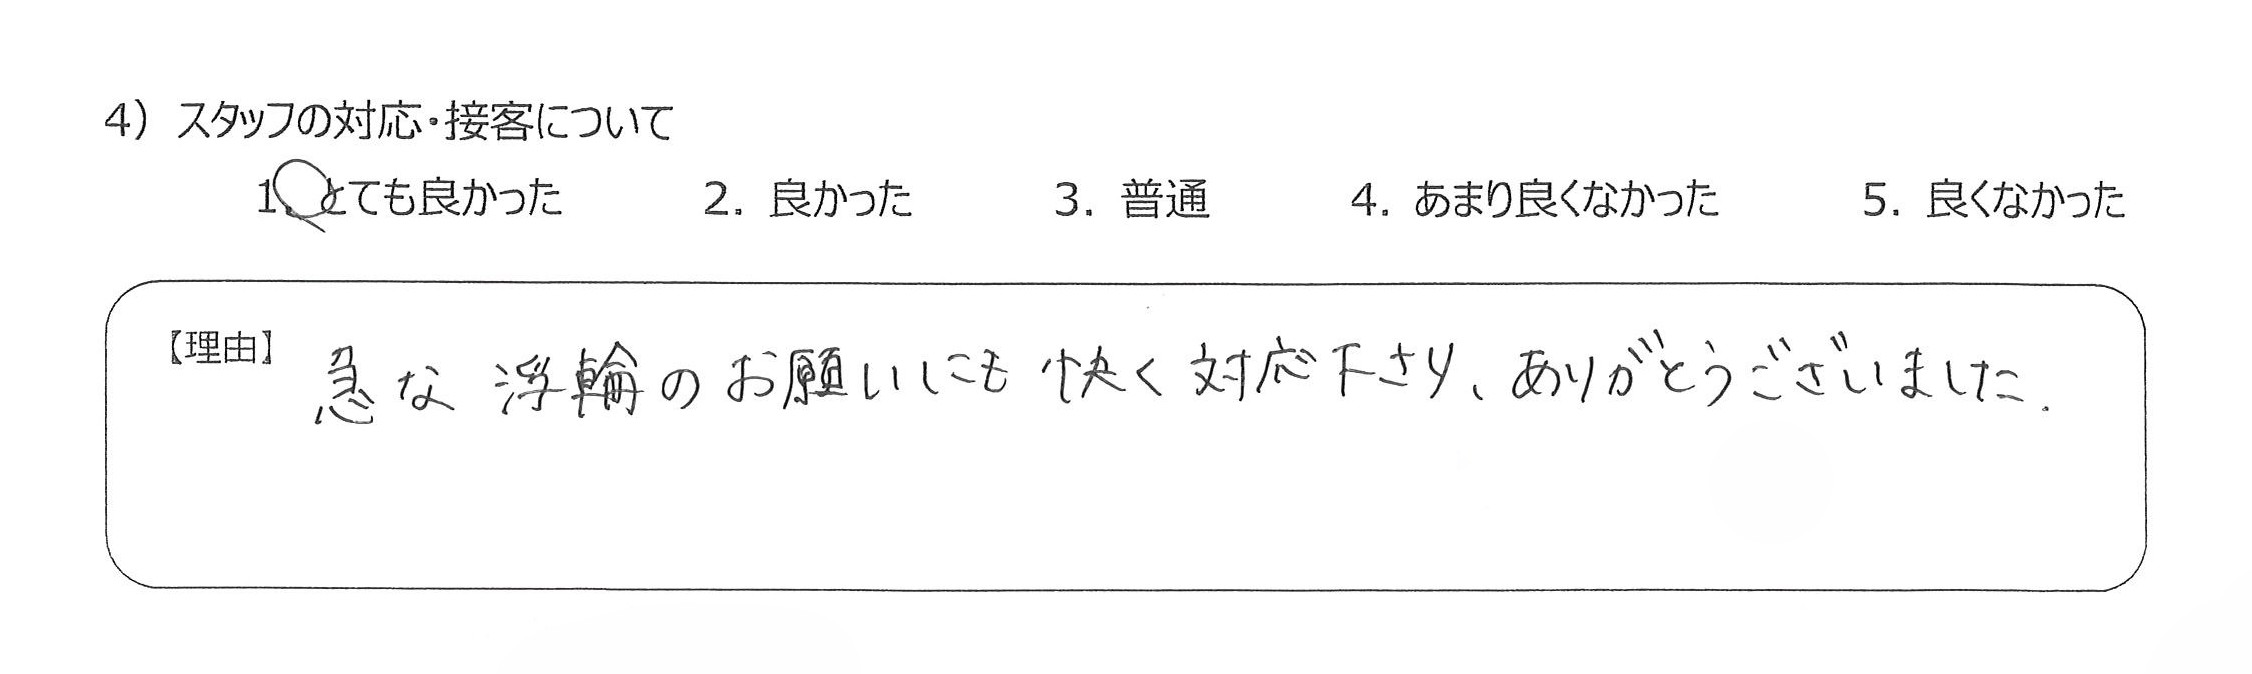 4）スタッフの対応・接客について
1. とても良かった 2. 良かった 3. 普通 4. あまり良くなかった 5. 良くなかった
【理由】急な浮輪のお願いにも快く対応下さり、ありがとうございました.